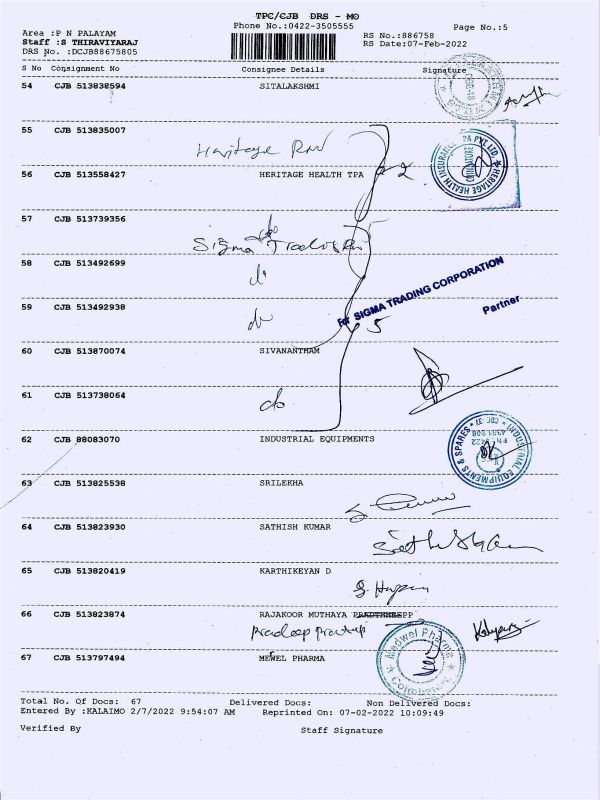 TPC/CJB DRS - MO
Area :P N PALAYAM Phone No.:0422-3505555 Page No.:5
Staff :S THIRAVIYARAJ RS No.:886758
DRS No. :DCJB88675805 RS Date:07-Feb-2022
S No Consignment No Consignee Details Signature
54 CJB 513838594 SITALAKSHMI
55 CJB 513835007
Heritage
56 CJB 513558427 HERITAGE HEALTH TPA 2
HERITAGE HEALTH INSURANCE TPA PVT LTD
COIMBATORE
57 CJB 513739356
Sigma Trading
58 CJB 513492699
do
59 CJB 513492938
do
For SIGMA TRADING CORPORATION
Partner
5
60 CJB 513870074 SIVANANTHAM
61 CJB 513738064
do
62 CJB 88083070 INDUSTRIAL EQUIPMENTS
INDUSTRIAL EQUIPMENTS & SPARES
63 CJB 513825538 SRILEKHA
64 CJB 513823930 SATHISH KUMAR
65 CJB 513820419 KARTHIKEYAN D
66 CJB 513823874 RAJAKOOR MUTHAYA
67 CJB 513797494 MEWEL PHARMA
Medwel Pharma
Coimbatore
Total No. Of Docs: 67 Delivered Docs: Non Delivered Docs:
Entered By :KALAIMO 2/7/2022 9:54:07 AM Reprinted On: 07-02-2022 10:09:49
Verified By Staff Signature